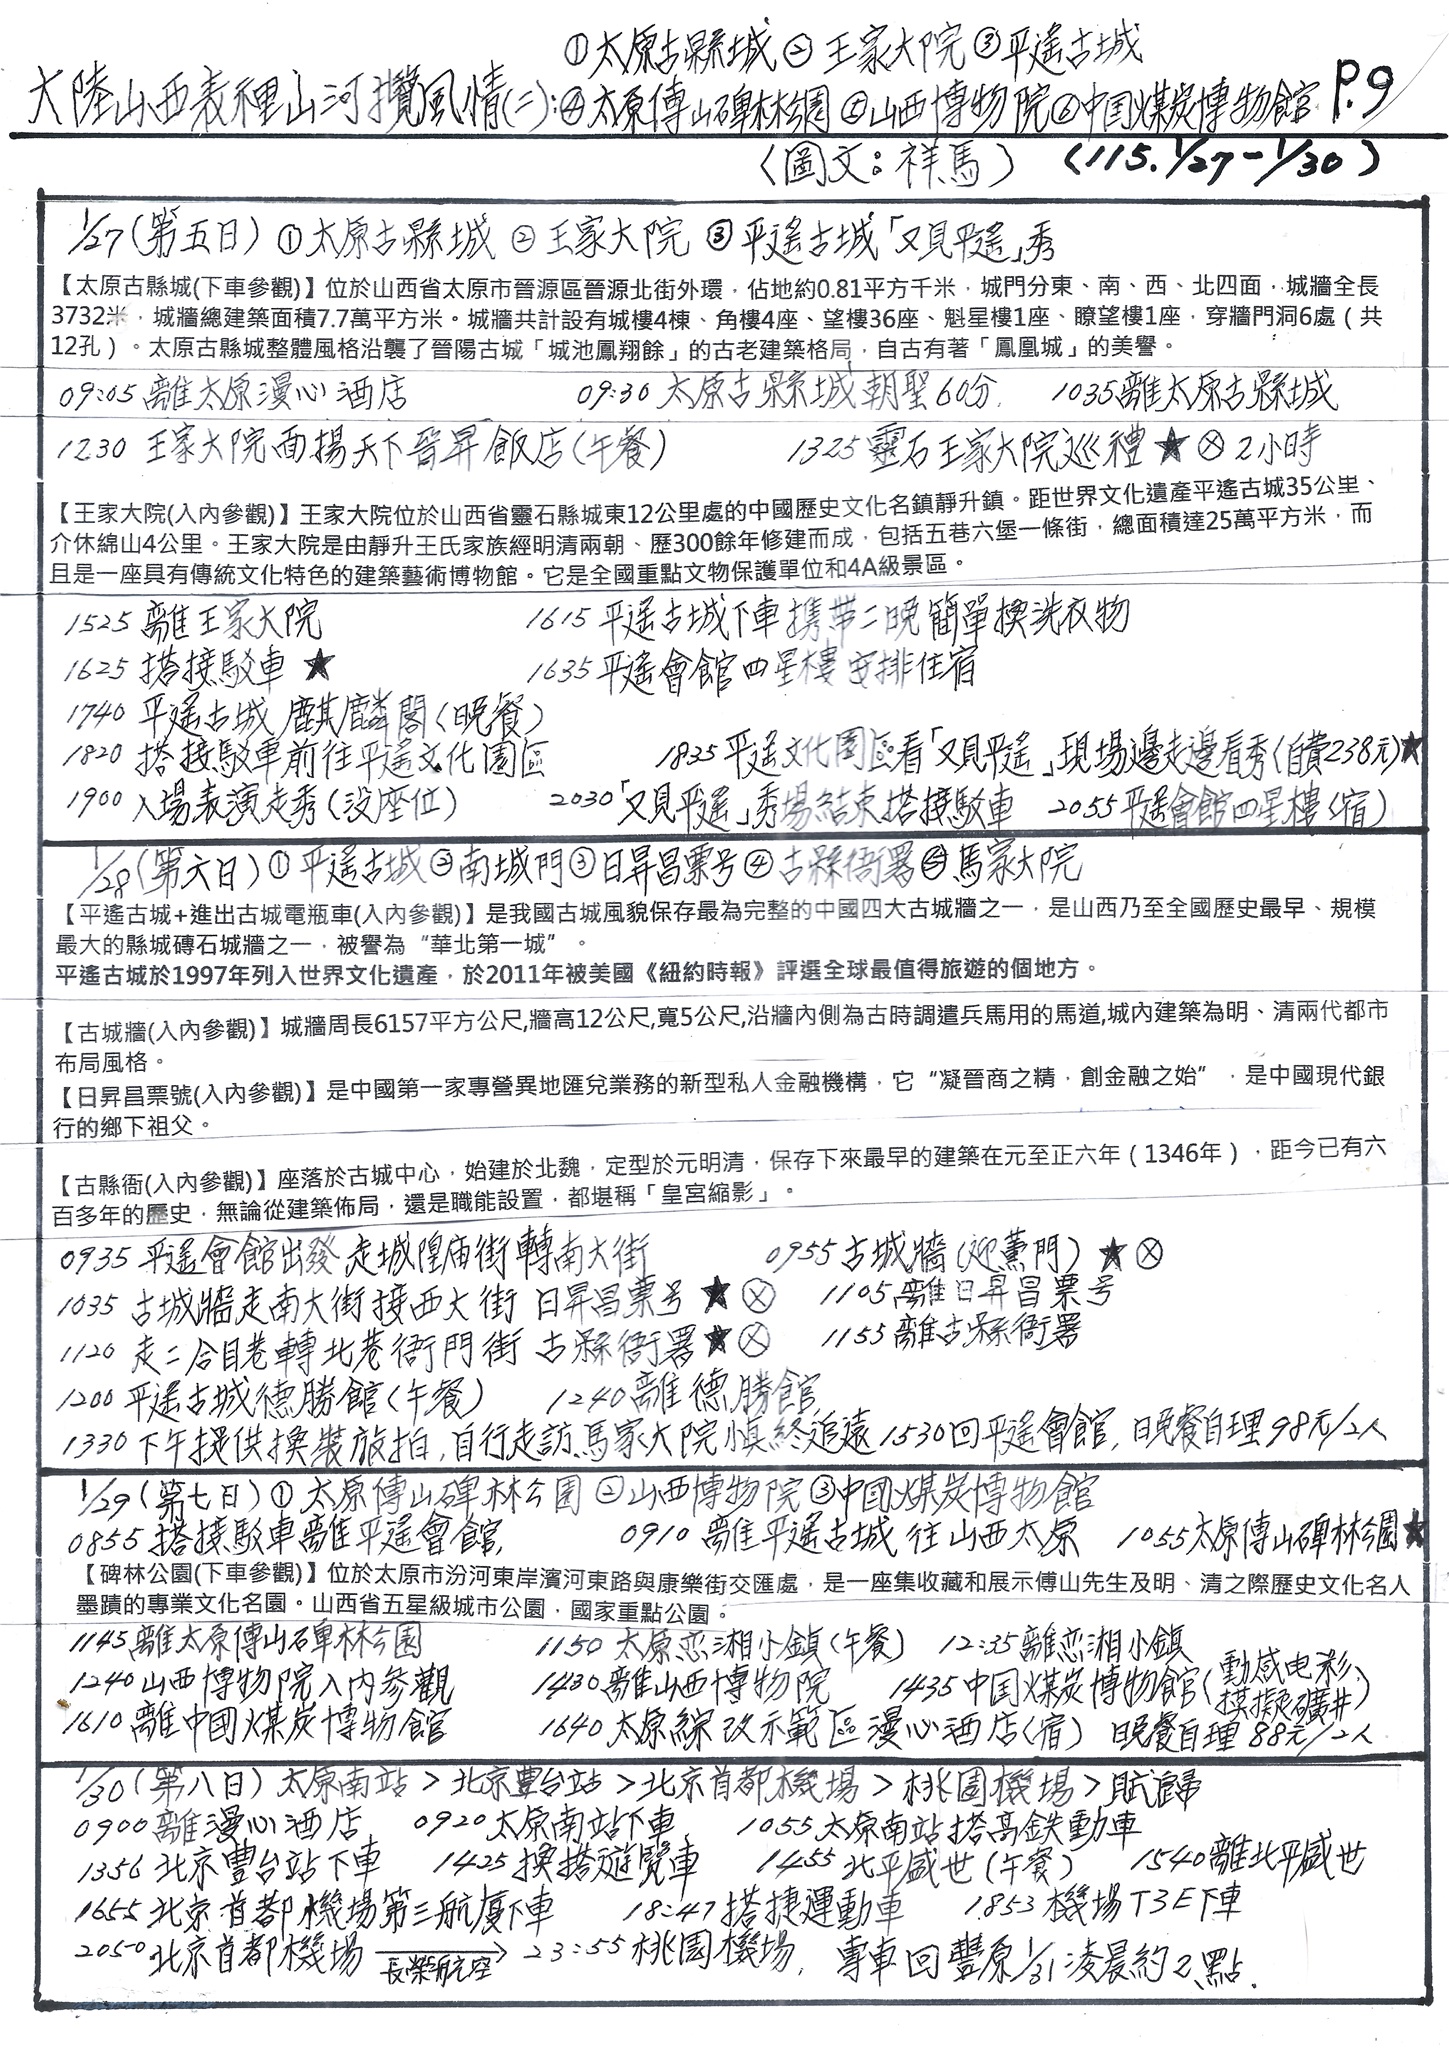 ①太原古縣城②王家大院③平遙古城
大陸山西表裡山河攬風情(二):④太原傅山碑林公園⑤山西博物院⑥中国煤炭博物館 P.9
(圖文:祥馬) (115.1/27-1/30)
1/27(第五日)①太原古縣城②王家大院③平遙古城「又見平遙」秀
【太原古縣城(下車參觀)】位於山西省太原市晉源區晉源北街外環,佔地約0.81平方千米,城門分東、南、西、北四面,城牆全長
3732米,城牆總建築面積7.7萬平方米。城牆共計設有城樓4棟、角樓4座、望樓36座、魁星樓1座、瞭望樓1座,穿牆門洞6處(共
12孔)。太原古縣城整體風格沿襲了晉陽古城「城池鳳翔餘」的古老建築格局,自古有著「鳳凰城」的美譽。
09:05離太原漫心酒店 09:30太原古縣城朝聖60分. 1035離太原古縣城
1230 王家大院面揚天下晉昇飯店(午餐) 1325靈石王家大院巡禮★⊗2小時
【王家大院(入內參觀)】王家大院位於山西省靈石縣城東12公里處的中國歷史文化名鎮靜升鎮。距世界文化遺產平遙古城35公里、
介休綿山4公里。王家大院是由靜升王氏家族經明清兩朝、歷300餘年修建而成,包括五巷六堡一條街,總面積達25萬平方米,而
且是一座具有傳統文化特色的建築藝術博物館。它是全國重點文物保護單位和4A級景區。
1525 離王家大院 1615平遙古城下車攜帶二晚簡單換洗衣物
1625 搭接駁車★ 1635平遙會館四星樓安排住宿
1740 平遙古城麒麟閣(晚餐)
1820 搭接駁車前往平遙文化園區 1835平遙文化園區看「又見平遙」現場邊走邊看秀(自費238元)★
1900 入場表演走秀(没座位) 2030「又見平遙」秀場結束搭接駁車 2055平遙會館四星樓(宿)
1/28(第六日)①平遙古城②南城門③日昇昌票号④古縣衙署⑤馬家大院
【平遙古城+進出古城電瓶車(入內參觀)】是我國古城風貌保存最為完整的中國四大古城牆之一,是山西乃至全國歷史最早、規模
最大的縣城磚石城牆之一,被譽為“華北第一城”。
平遙古城於1997年列入世界文化遺產,於2011年被美國《紐約時報》評選全球最值得旅遊的個地方。
【古城牆(入內參觀)】城牆周長6157平方公尺,牆高12公尺,寬5公尺,沿牆內側為古時調遣兵馬用的馬道,城內建築為明、清兩代都市
布局風格。
【日昇昌票號(入內參觀)】是中國第一家專營異地匯兌業務的新型私人金融機構,它“凝晉商之精,創金融之始”,是中國現代銀
行的鄉下祖父。
【古縣衙(入內參觀)】座落於古城中心,始建於北魏,定型於元明清,保存下來最早的建築在元至正六年(1346年),距今已有六
百多年的歷史,無論從建築佈局,還是職能設置,都堪稱「皇宮縮影」。
0935 平遙會館出發走城隍庙街轉南大街 0955古城牆(迎薰門)★⊗
1035 古城牆走南大街接西大街 日昇昌票号★⊗ 1105離日昇昌票号
1120 走二合目巷轉北巷衙門街 古縣衙署★⊗ 1155離古縣衙署
1200 平遙古城德勝館(午餐) 1240離德勝館
1330下午提供換裝旅拍,自行走訪馬家大院慎終追遠1530回平遙會館,晚餐自理98元/2人
1/29(第七日)①太原傅山碑林公園②山西博物院③中國煤炭博物館
0855 搭接駁車離平遙會館, 0910 離平遙古城往山西太原 1055太原傅山碑林公園★
【碑林公園(下車參觀)】位於太原市汾河東岸濱河東路與康樂街交匯處,是一座集收藏和展示傅山先生及明、清之際歷史文化名人
墨蹟的專業文化名園。山西省五星級城市公園,國家重點公園。
1145離太原傅山碑林公園 1150太原恋湘小鎮(午餐) 12:35離恋湘小鎮
1240山西博物院入內參觀 1430離山西博物院 1435中国煤炭博物館(動感电影、模擬礦井)
1610離中國煤炭博物館 1640太原綜改示範區漫心酒店(宿) 晚餐自理88元/2人
1/30(第八日)太原南站>北京豐台站>北京首都機場>桃園機場>賦歸
0900離漫心酒店 0920太原南站下車 1055太原南站搭高鉄動車
1356北京豐台站下車 1425換搭遊覽車 1455北平盛世(午餐) 1540離北平盛世
1655北京首都機場第三航廈下車 18:47搭捷運動車 1853機場T3E下車
2050北京首都機場 長榮航空 23:55桃園機場, 專車回豐原1/31凌晨約2點.